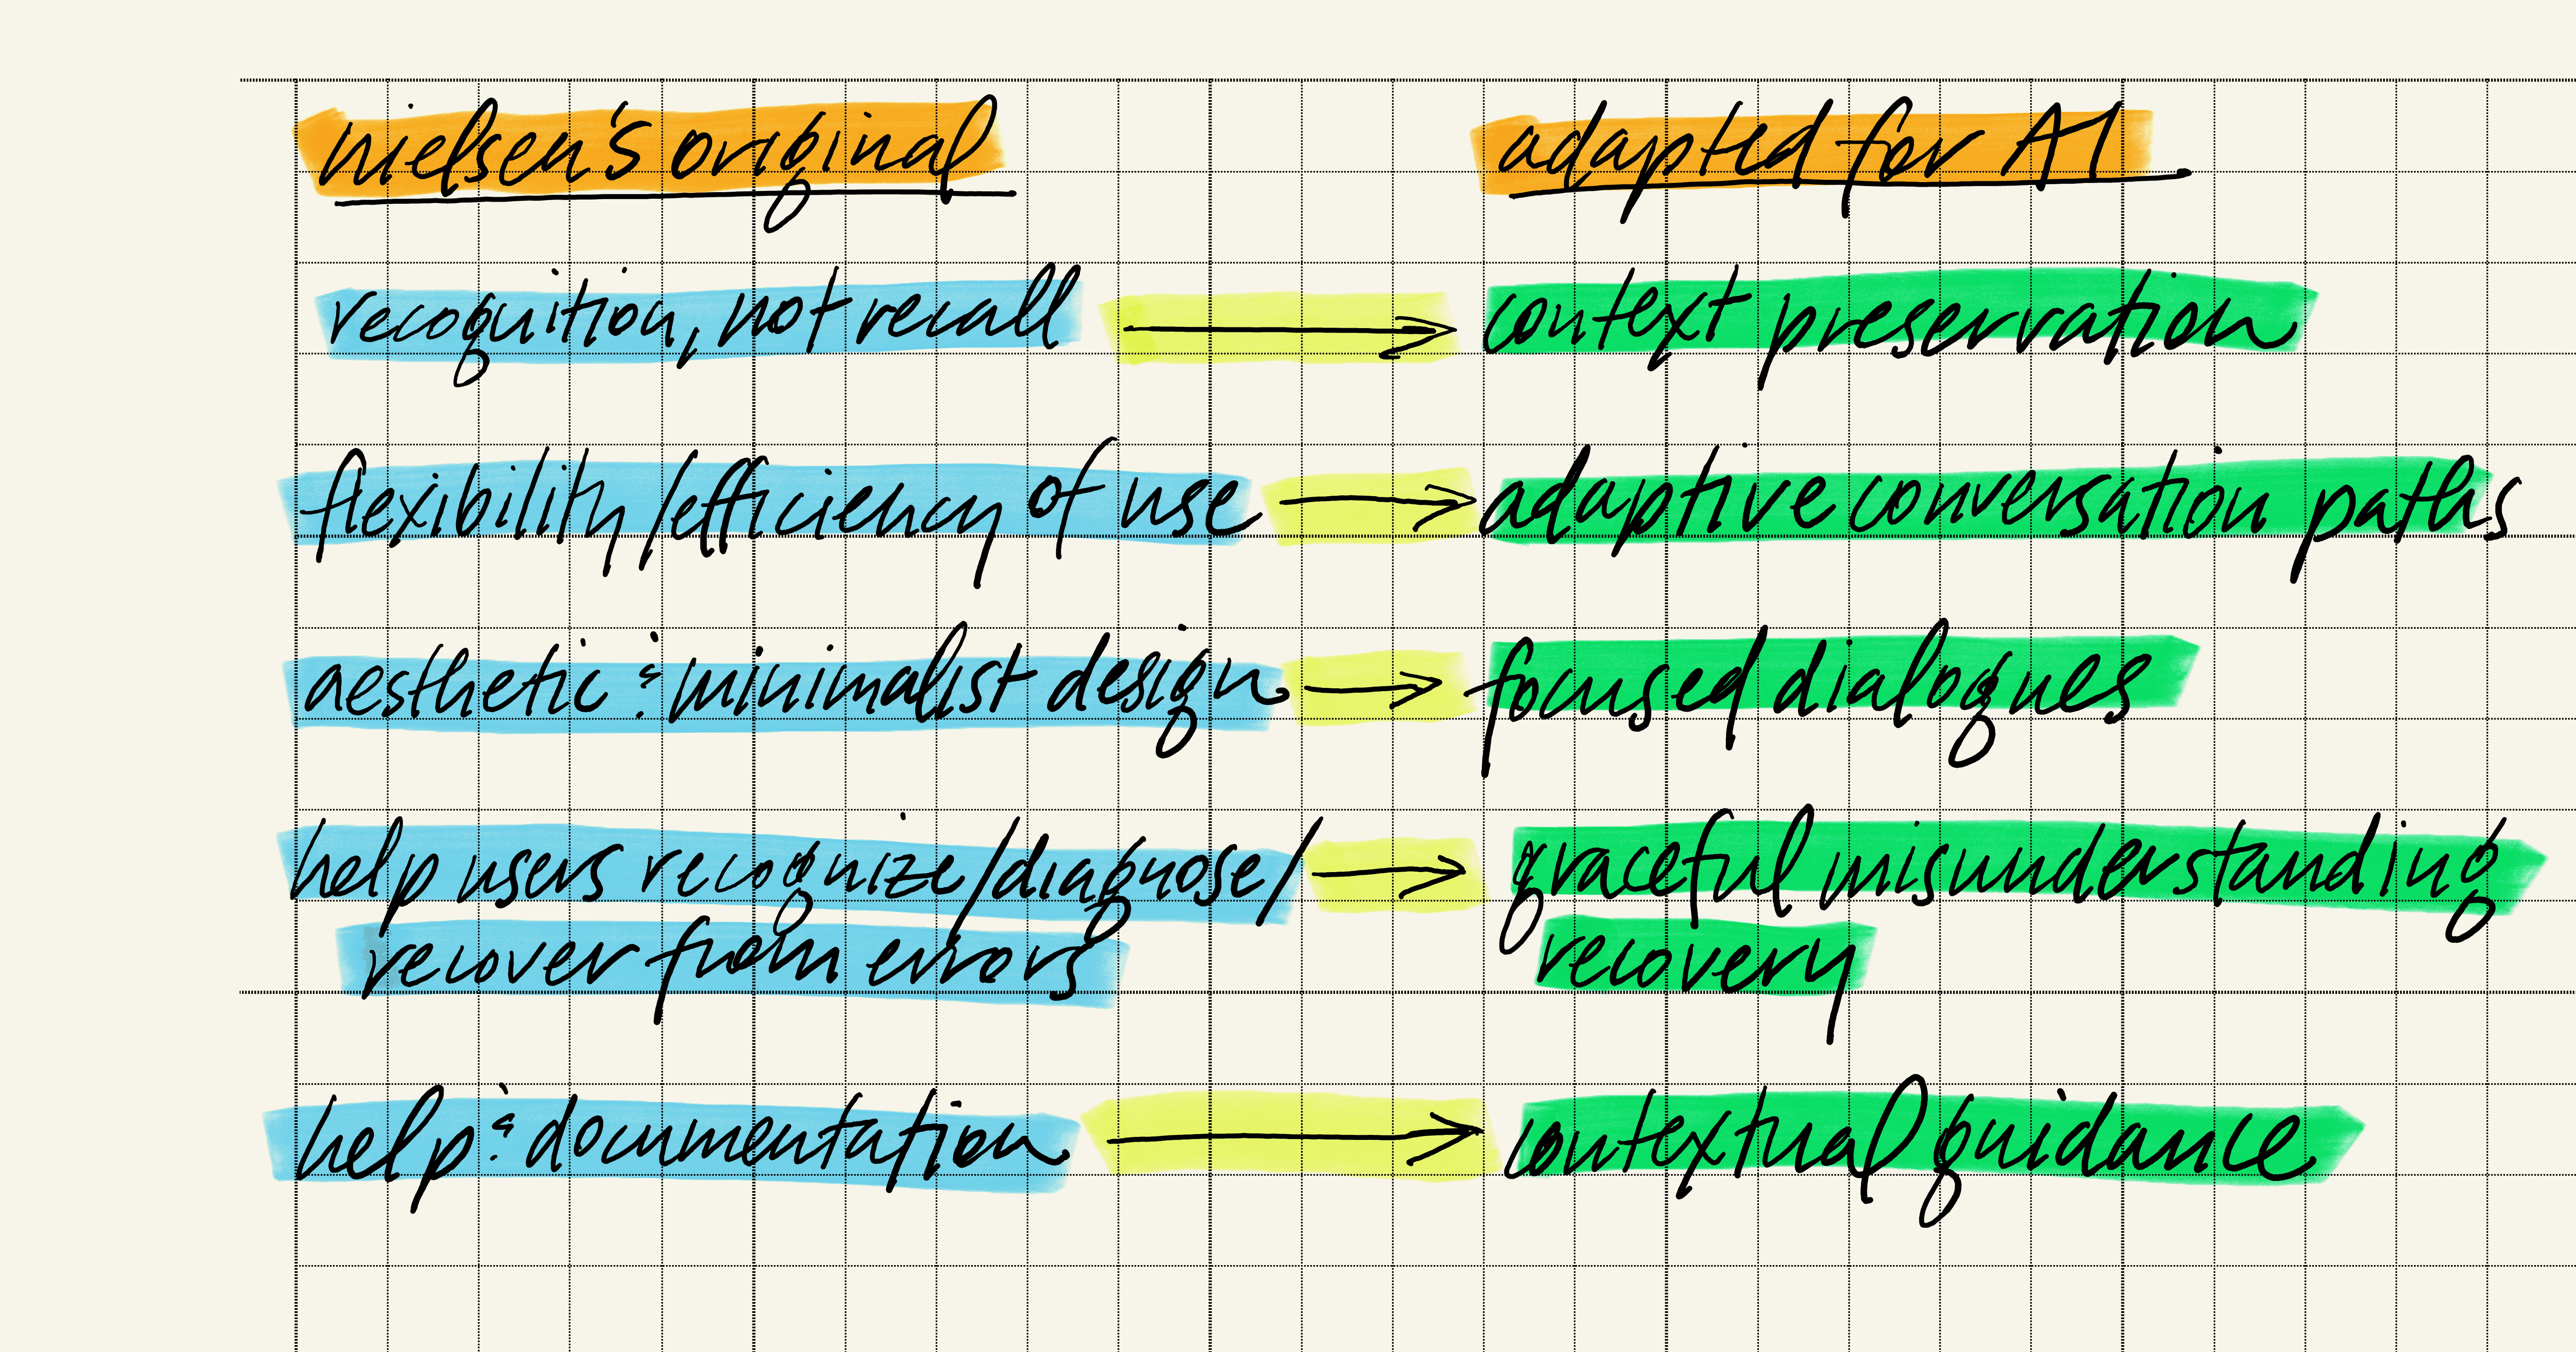 nielsen's original
adapted for AI
recognition, not recall → context preservation
flexibility/efficiency of use → adaptive conversation paths
aesthetic & minimalist design → focused dialogues
help users recognize/diagnose/ → graceful misunderstanding
recover from errors
recovery
help & documentation → contextual guidance